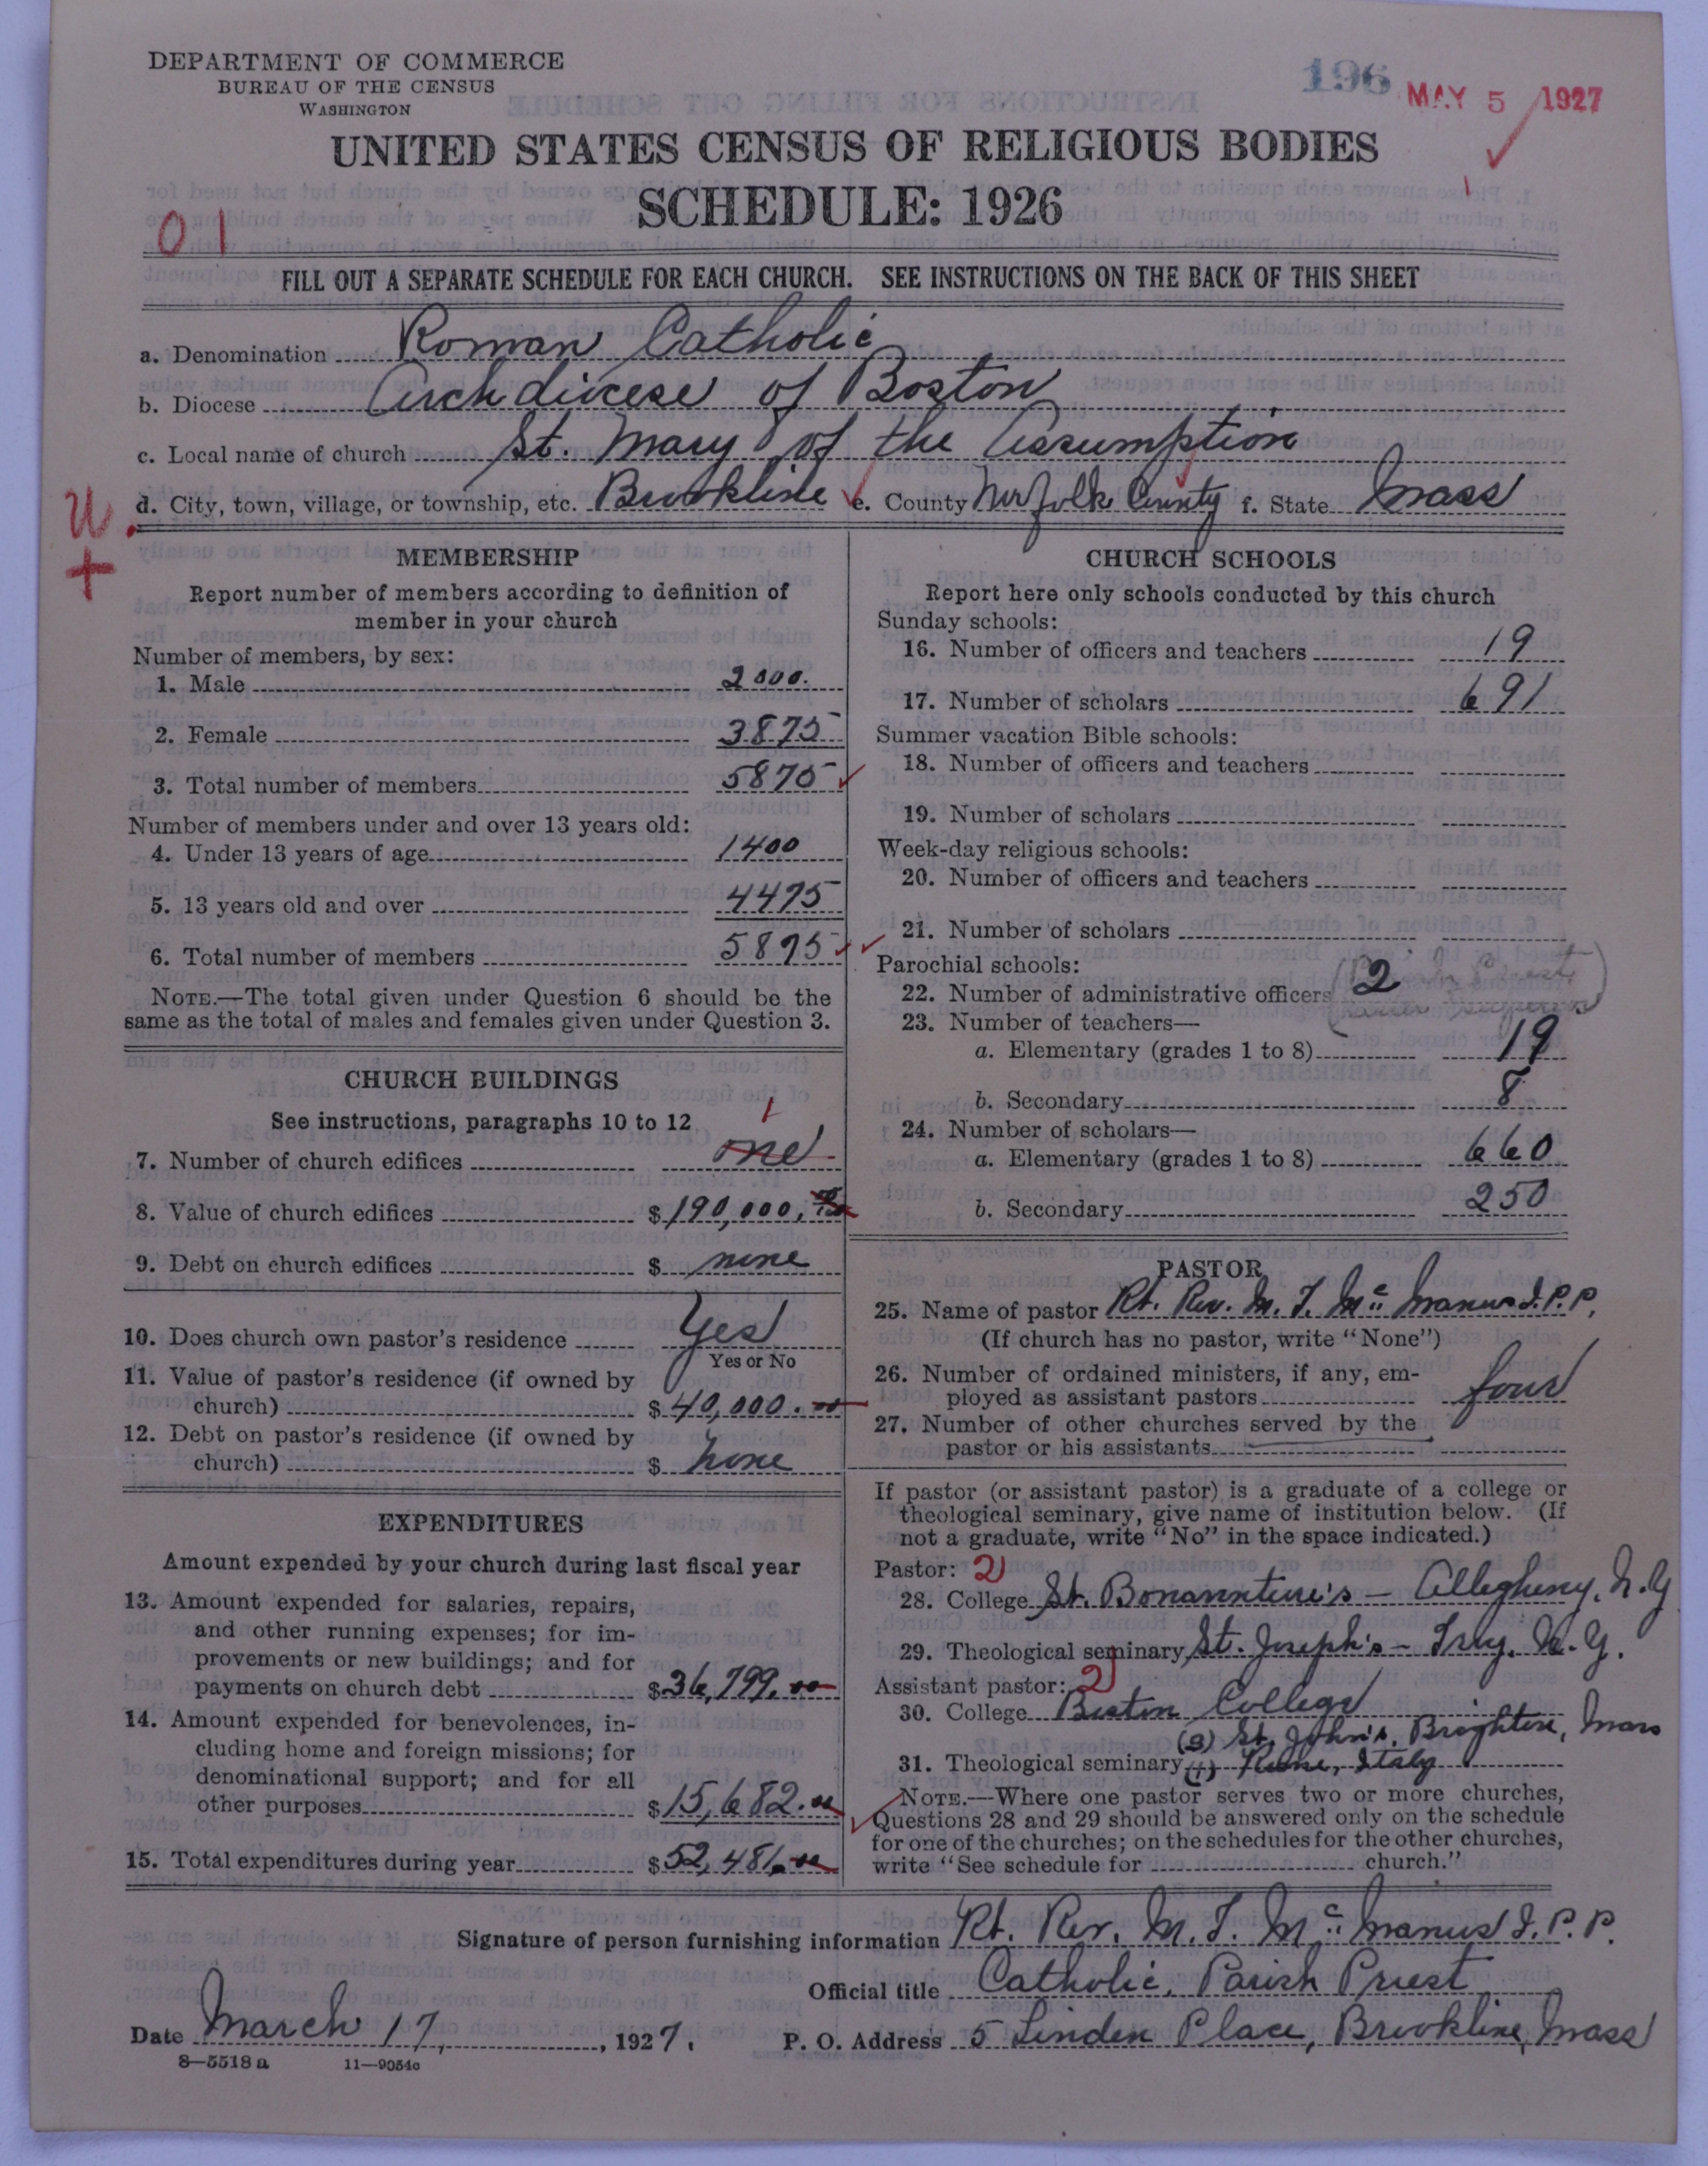 DEPARTMENT OF COMMERCE
BUREAU OF THE CENSUS
WASHINGTON
196 MAY 5 1927
UNITED STATES CENSUS OF RELIGIOUS BODIES
SCHEDULE: 1926
01
FILL OUT A SEPARATE SCHEDULE FOR EACH CHURCH. SEE INSTRUCTIONS ON THE BACK OF THIS SHEET
a. Denomination Roman Catholic
b. Diocese Archdiocese of Boston
c. Local name of church St. Mary of the Assumption
d. City, town, village, or township, etc. Brookline e. County Norfolk County f. State Mass
U.
+
MEMBERSHIP
Report number of members according to definition of
member in your church
Number of members, by sex:
1. Male 2000.
2. Female 3875
3. Total number of members 5875
Number of members under and over 13 years old:
4. Under 13 years of age 1400
5. 13 years old and over 4475
6. Total number of members 5875
NOTE.—The total given under Question 6 should be the
same as the total of males and females given under Question 3.
CHURCH BUILDINGS
See instructions, paragraphs 10 to 12
1
7. Number of church edifices one
8. Value of church edifices $190,000.
9. Debt on church edifices $ none
10. Does church own pastor's residence Yes
Yes or No
11. Value of pastor's residence (if owned by
church) $40,000.00
12. Debt on pastor's residence (if owned by
church) $ none
EXPENDITURES
Amount expended by your church during last fiscal year
13. Amount expended for salaries, repairs,
and other running expenses; for im-
provements or new buildings; and for
payments on church debt $36,799.00
14. Amount expended for benevolences, in-
cluding home and foreign missions; for
denominational support; and for all
other purposes $15,682.00
15. Total expenditures during year $52,481.00
CHURCH SCHOOLS
Report here only schools conducted by this church
Sunday schools:
16. Number of officers and teachers 19
17. Number of scholars 691
Summer vacation Bible schools:
18. Number of officers and teachers
19. Number of scholars
Week-day religious schools:
20. Number of officers and teachers
21. Number of scholars
Parochial schools:
22. Number of administrative officers 2
23. Number of teachers—
a. Elementary (grades 1 to 8) 19
b. Secondary 8
24. Number of scholars—
a. Elementary (grades 1 to 8) 660
b. Secondary 250
PASTOR
25. Name of pastor Rt. Rev. M. T. Mc Manus I.P.P.
(If church has no pastor, write "None")
26. Number of ordained ministers, if any, em-
ployed as assistant pastors four
27. Number of other churches served by the
pastor or his assistants
If pastor (or assistant pastor) is a graduate of a college or
theological seminary, give name of institution below. (If
not a graduate, write "No" in the space indicated.)
Pastor: 2
28. College St. Bonaventure's – Allegheny, N.Y
29. Theological seminary St. Joseph's – Troy, N.Y.
Assistant pastor: 2
30. College Boston College
(3) St. John's, Brighton, Mass
31. Theological seminary (1) Rome, Italy
NOTE.—Where one pastor serves two or more churches,
Questions 28 and 29 should be answered only on the schedule
for one of the churches; on the schedules for the other churches,
write "See schedule for church."
Signature of person furnishing information Rt. Rev. M. T. Mc Manus I.P.P.
Official title Catholic Parish Priest
Date March 17, 1927. P. O. Address 5 Linden Place, Brookline, Mass
8—5518 a 11—9054c